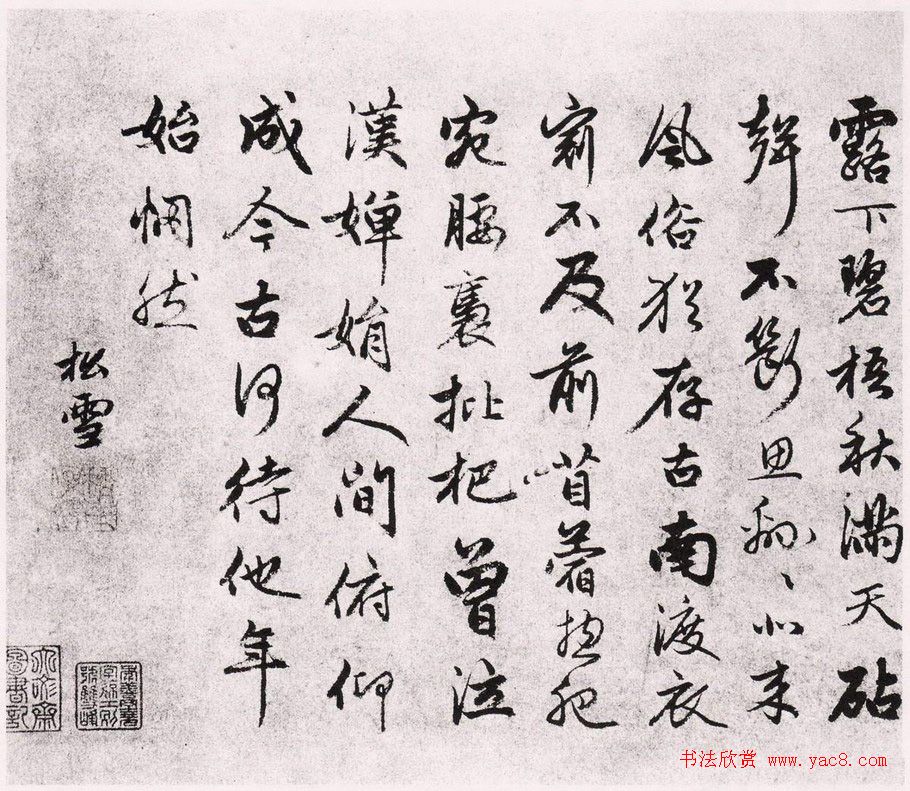 露下碧梧秋滿天砧
聲不斷思綿々北來
風俗猶存古南渡衣
冠不及前苜蓿總肥
宛腰褭枇杷曾泣
漢嬋娟人間俯仰
成今古何待他年
始惘然
松雪
书法欣赏 www.yac8.com